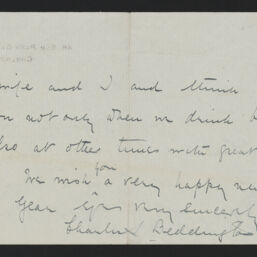 wife and I and think
on not only when we drink
also at other times with great
We wish you a very happy new
Year Yrs very sincerely
Charles Beddington